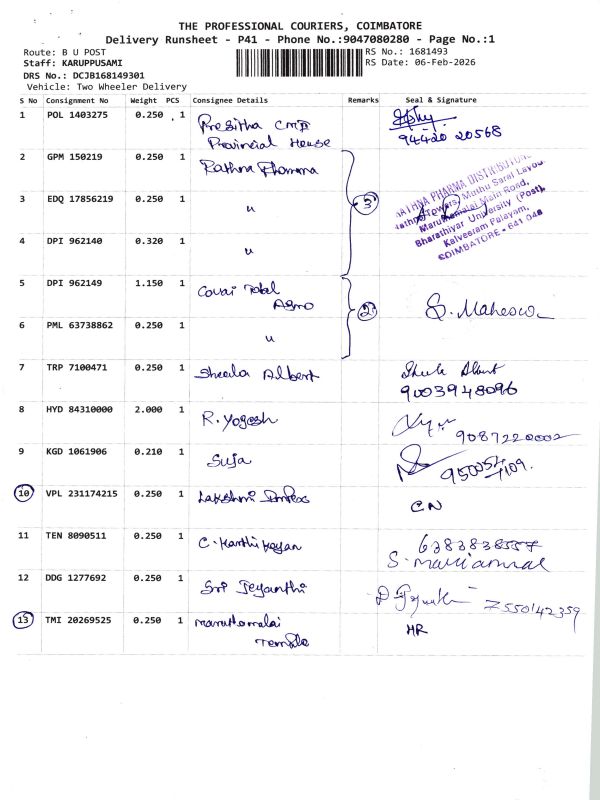 THE PROFESSIONAL COURIERS, COIMBATORE
Delivery Runsheet - P41 - Phone No.:9047080280 - Page No.:1
Route: B U POST RS No.: 1681493
Staff: KARUPPUSAMI RS Date: 06-Feb-2026
DRS No.: DCJB168149301
Vehicle: Two Wheeler Delivery
S No Consignment No Weight PCS Consignee Details Remarks Seal & Signature
1 POL 1403275 0.250 1 Presitha CMD
Provincial House 94420 20568
2 GPM 150219 0.250 1 Rathna Pharma
3 EDQ 17856219 0.250 1 " 3
RATHNA PHARMA DISTRIBUTORS
Rathna Towers, Muthu Saral Layout
Maruthamalai Main Road,
Bharathiyar University (Post),
Kalveeram Palayam,
COIMBATORE - 641 046
4 DPI 962140 0.320 1 "
5 DPI 962149 1.150 1 Covai Total
Agro 2 S. Maheswa
6 PML 63738862 0.250 1 "
7 TRP 7100471 0.250 1 Sheela Albert
9003948096
8 HYD 84310000 2.000 1 R. Yogesh
9087220002
9 KGD 1061906 0.210 1 Suja
10 VPL 231174215 0.250 1 Lakshmi Impex CN
11 TEN 8090511 0.250 1 C. Karthikeyan 6383838557
S. Mariammal
12 DDG 1277692 0.250 1 Sri Jeyanthi 7550142359
13 TMI 20269525 0.250 1 Maruthamalai HR
Temple